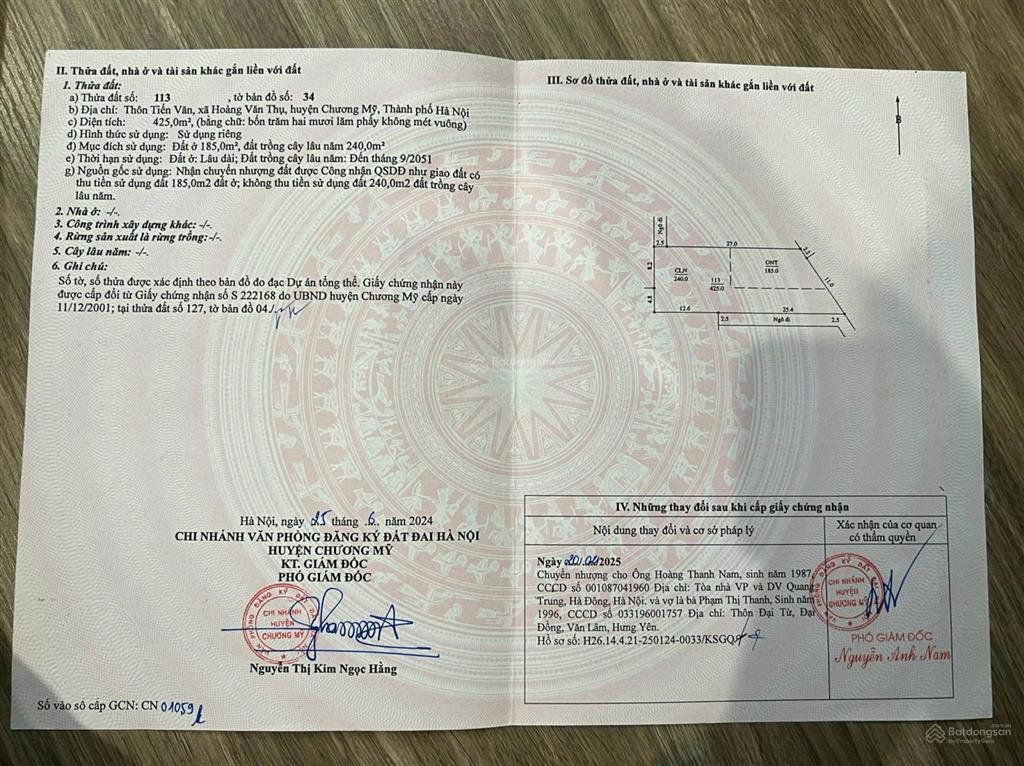 II. Thửa đất, nhà ở và tài sản khác gắn liền với đất
1. Thửa đất:
a) Thửa đất số: 113 , tờ bản đồ số: 34
b) Địa chỉ: Thôn Tiến Văn, xã Hoàng Văn Thụ, huyện Chương Mỹ, Thành phố Hà Nội
c) Diện tích: 425,0m², (bằng chữ: bốn trăm hai mươi lăm phẩy không mét vuông)
d) Hình thức sử dụng: Sử dụng riêng
đ) Mục đích sử dụng: Đất ở 185,0m², đất trồng cây lâu năm 240,0m²
e) Thời hạn sử dụng: Đất ở: Lâu dài; Đất trồng cây lâu năm: Đến tháng 9/2051
g) Nguồn gốc sử dụng: Nhận chuyển nhượng đất được Công nhận QSDĐ như giao đất có
thu tiền sử dụng đất 185,0m2 đất ở; không thu tiền sử dụng đất 240,0m2 đất trồng cây
lâu năm.
2. Nhà ở: -/-.
3. Công trình xây dựng khác: -/-.
4. Rừng sản xuất là rừng trồng: -/-.
5. Cây lâu năm: -/-.
6. Ghi chú:
Số tờ, số thửa được xác định theo bản đồ đo đạc Dự án tổng thể. Giấy chứng nhận này
được cấp đổi từ Giấy chứng nhận số S 222168 do UBND huyện Chương Mỹ cấp ngày
11/12/2001; tại thửa đất số 127, tờ bản đồ 04./.
Hà Nội, ngày 25 tháng 6 năm 2024
CHI NHÁNH VĂN PHÒNG ĐĂNG KÝ ĐẤT ĐAI HÀ NỘI
HUYỆN CHƯƠNG MỸ
KT. GIÁM ĐỐC
PHÓ GIÁM ĐỐC
CHI NHÁNH
HUYỆN
CHƯƠNG MỸ
Nguyễn Thị Kim Ngọc Hằng
Số vào sổ cấp GCN: CN 01059
III. Sơ đồ thửa đất, nhà ở và tài sản khác gắn liền với đất
B
Ngõ đi
2.5
27.0
3.5
8.2
CLN
240.0
ONT
185.0
113
425.0
11.0
4.8
12.6
25.4
2.5
Ngõ đi
2.5
IV. Những thay đổi sau khi cấp giấy chứng nhận
Nội dung thay đổi và cơ sở pháp lý
Xác nhận của cơ quan
có thẩm quyền
Chuyển nhượng cho Ông Hoàng Thanh Nam, sinh năm 1987,
CCCD số 001087041960 Địa chỉ: Tòa nhà VP và DV Quang
Trung, Hà Đông, Hà Nội. và vợ là bà Phạm Thị Thanh, Sinh năm
1996, CCCD số 033196001757 Địa chỉ: Thôn Đại Từ, Đại
Đồng, Văn Lâm, Hưng Yên.
Hồ sơ số: H26.14.4.21-250124-0033/KSGQ
CHI NHÁNH
HUYỆN
CHƯƠNG MỸ
PHÓ GIÁM ĐỐC
Nguyễn Anh Nam
Batdongsan
by PropertyGuru